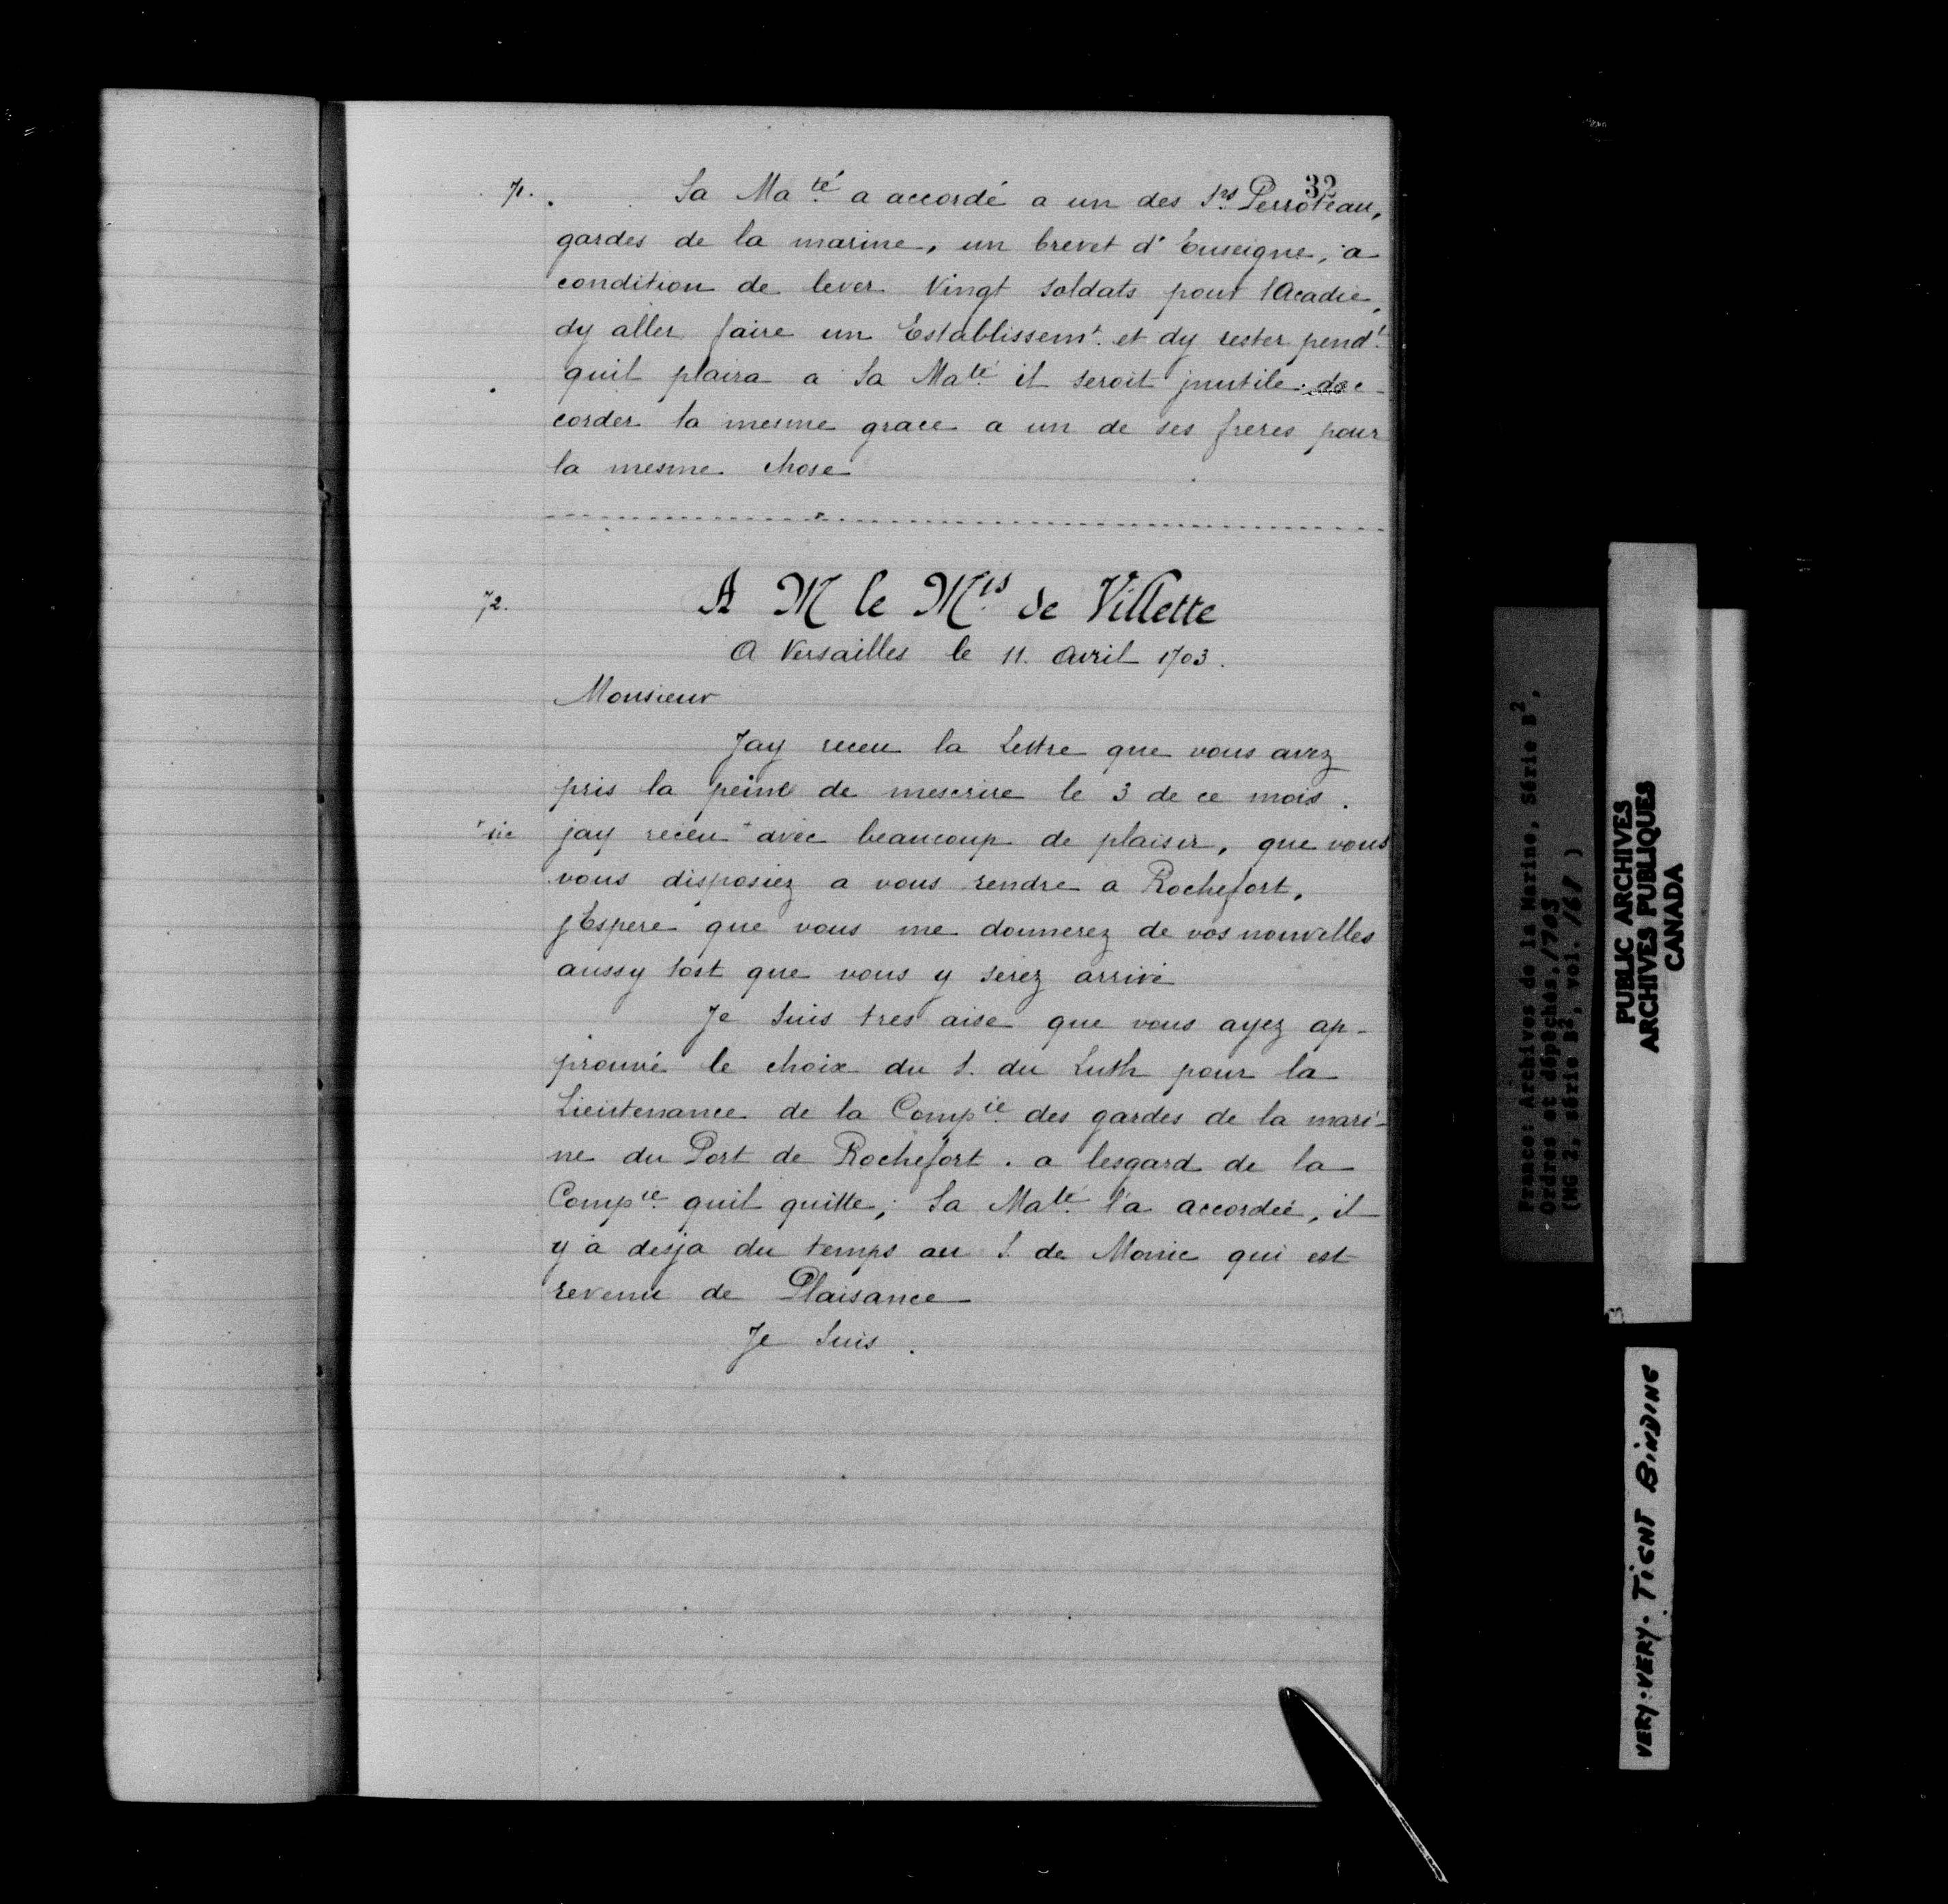 32
71. Sa Maté a accordé a un des Srs Perroteau,
gardes de la marine, un brevet d'Enseigne, a
condition de lever Vingt soldats pour lAcadie,
dy aller faire un Establissemt. et dy rester pendt.
quil plaira a Sa Maté il seroit jnutile dac-
corder la mesme grace a un de ses freres pour
la mesme chose
72. A M le Mis de Villette
A Versailles le 11. Avril 1703.
Monsieur
Jay receu la Lettre que vous avez
pris la peine de mescrire le 3 de ce mois.
+sic jay receu + avec beaucoup de plaisir, que vous
vous disposiez a vous rendre a Rochefort.
jEspere que vous me donnerez de vos nouvelles
aussy tost que vous y serez arrivé
Je suis tres aise que vous ayez ap-
prouvé le choix du S. du Luth pour la
Lieutenance de la Compie des gardes de la mari-
ne du Port de Rochefort. a lesgard de la
Compie quil quitte, Sa Maté l'a accordée, il
y a desja du temps au S. de Monic qui est
revenu de Plaisance
Je Suis.
France: Archives de la Marine, Série B2,
Ordres et dépêches, 1703
(MG 2, série B2, vol. 168)
PUBLIC ARCHIVES
ARCHIVES PUBLIQUES
CANADA
3
VERY-VERY-TIGHT BINDING